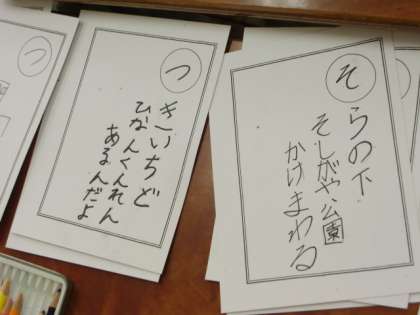 つ
つ
きいちど
ひなんくんれん
あるんだよ
そ
らの下
そしがや公園
かけまわる